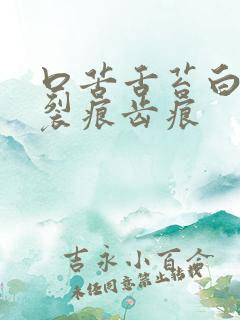 口苦舌苔白
裂痕齿痕
吉永小百合
未经同意禁止转载